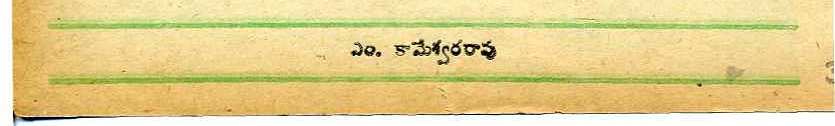 ఎం. కామేశ్వరరావు